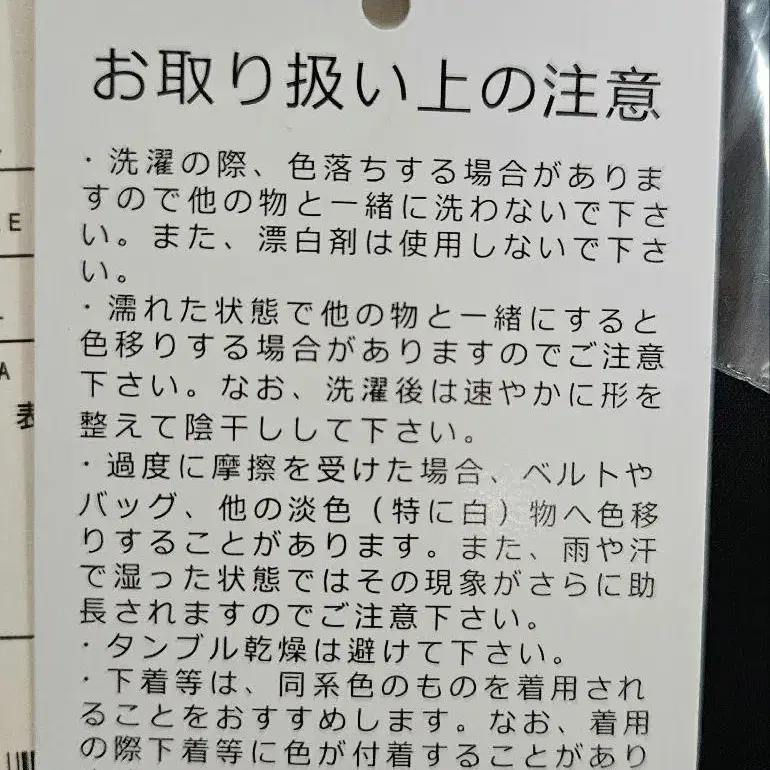 お取り扱い上の注意
・洗濯の際、色落ちする場合がありま
すので他の物と一緒に洗わないで下さ
い。また、漂白剤は使用しないで下さ
い。
・濡れた状態で他の物と一緒にすると
色移りする場合がありますのでご注意
下さい。なお、洗濯後は速やかに形を
整えて陰干しして下さい。
・過度に摩擦を受けた場合、ベルトや
バッグ、他の淡色（特に白）物へ色移
りすることがあります。また、雨や汗
で湿った状態ではその現象がさらに助
長されますのでご注意下さい。
・タンブル乾燥は避けて下さい。
・下着等は、同系色のものを着用され
ることをおすすめします。なお、着用
の際下着等に色が付着することがあり
E
A
表